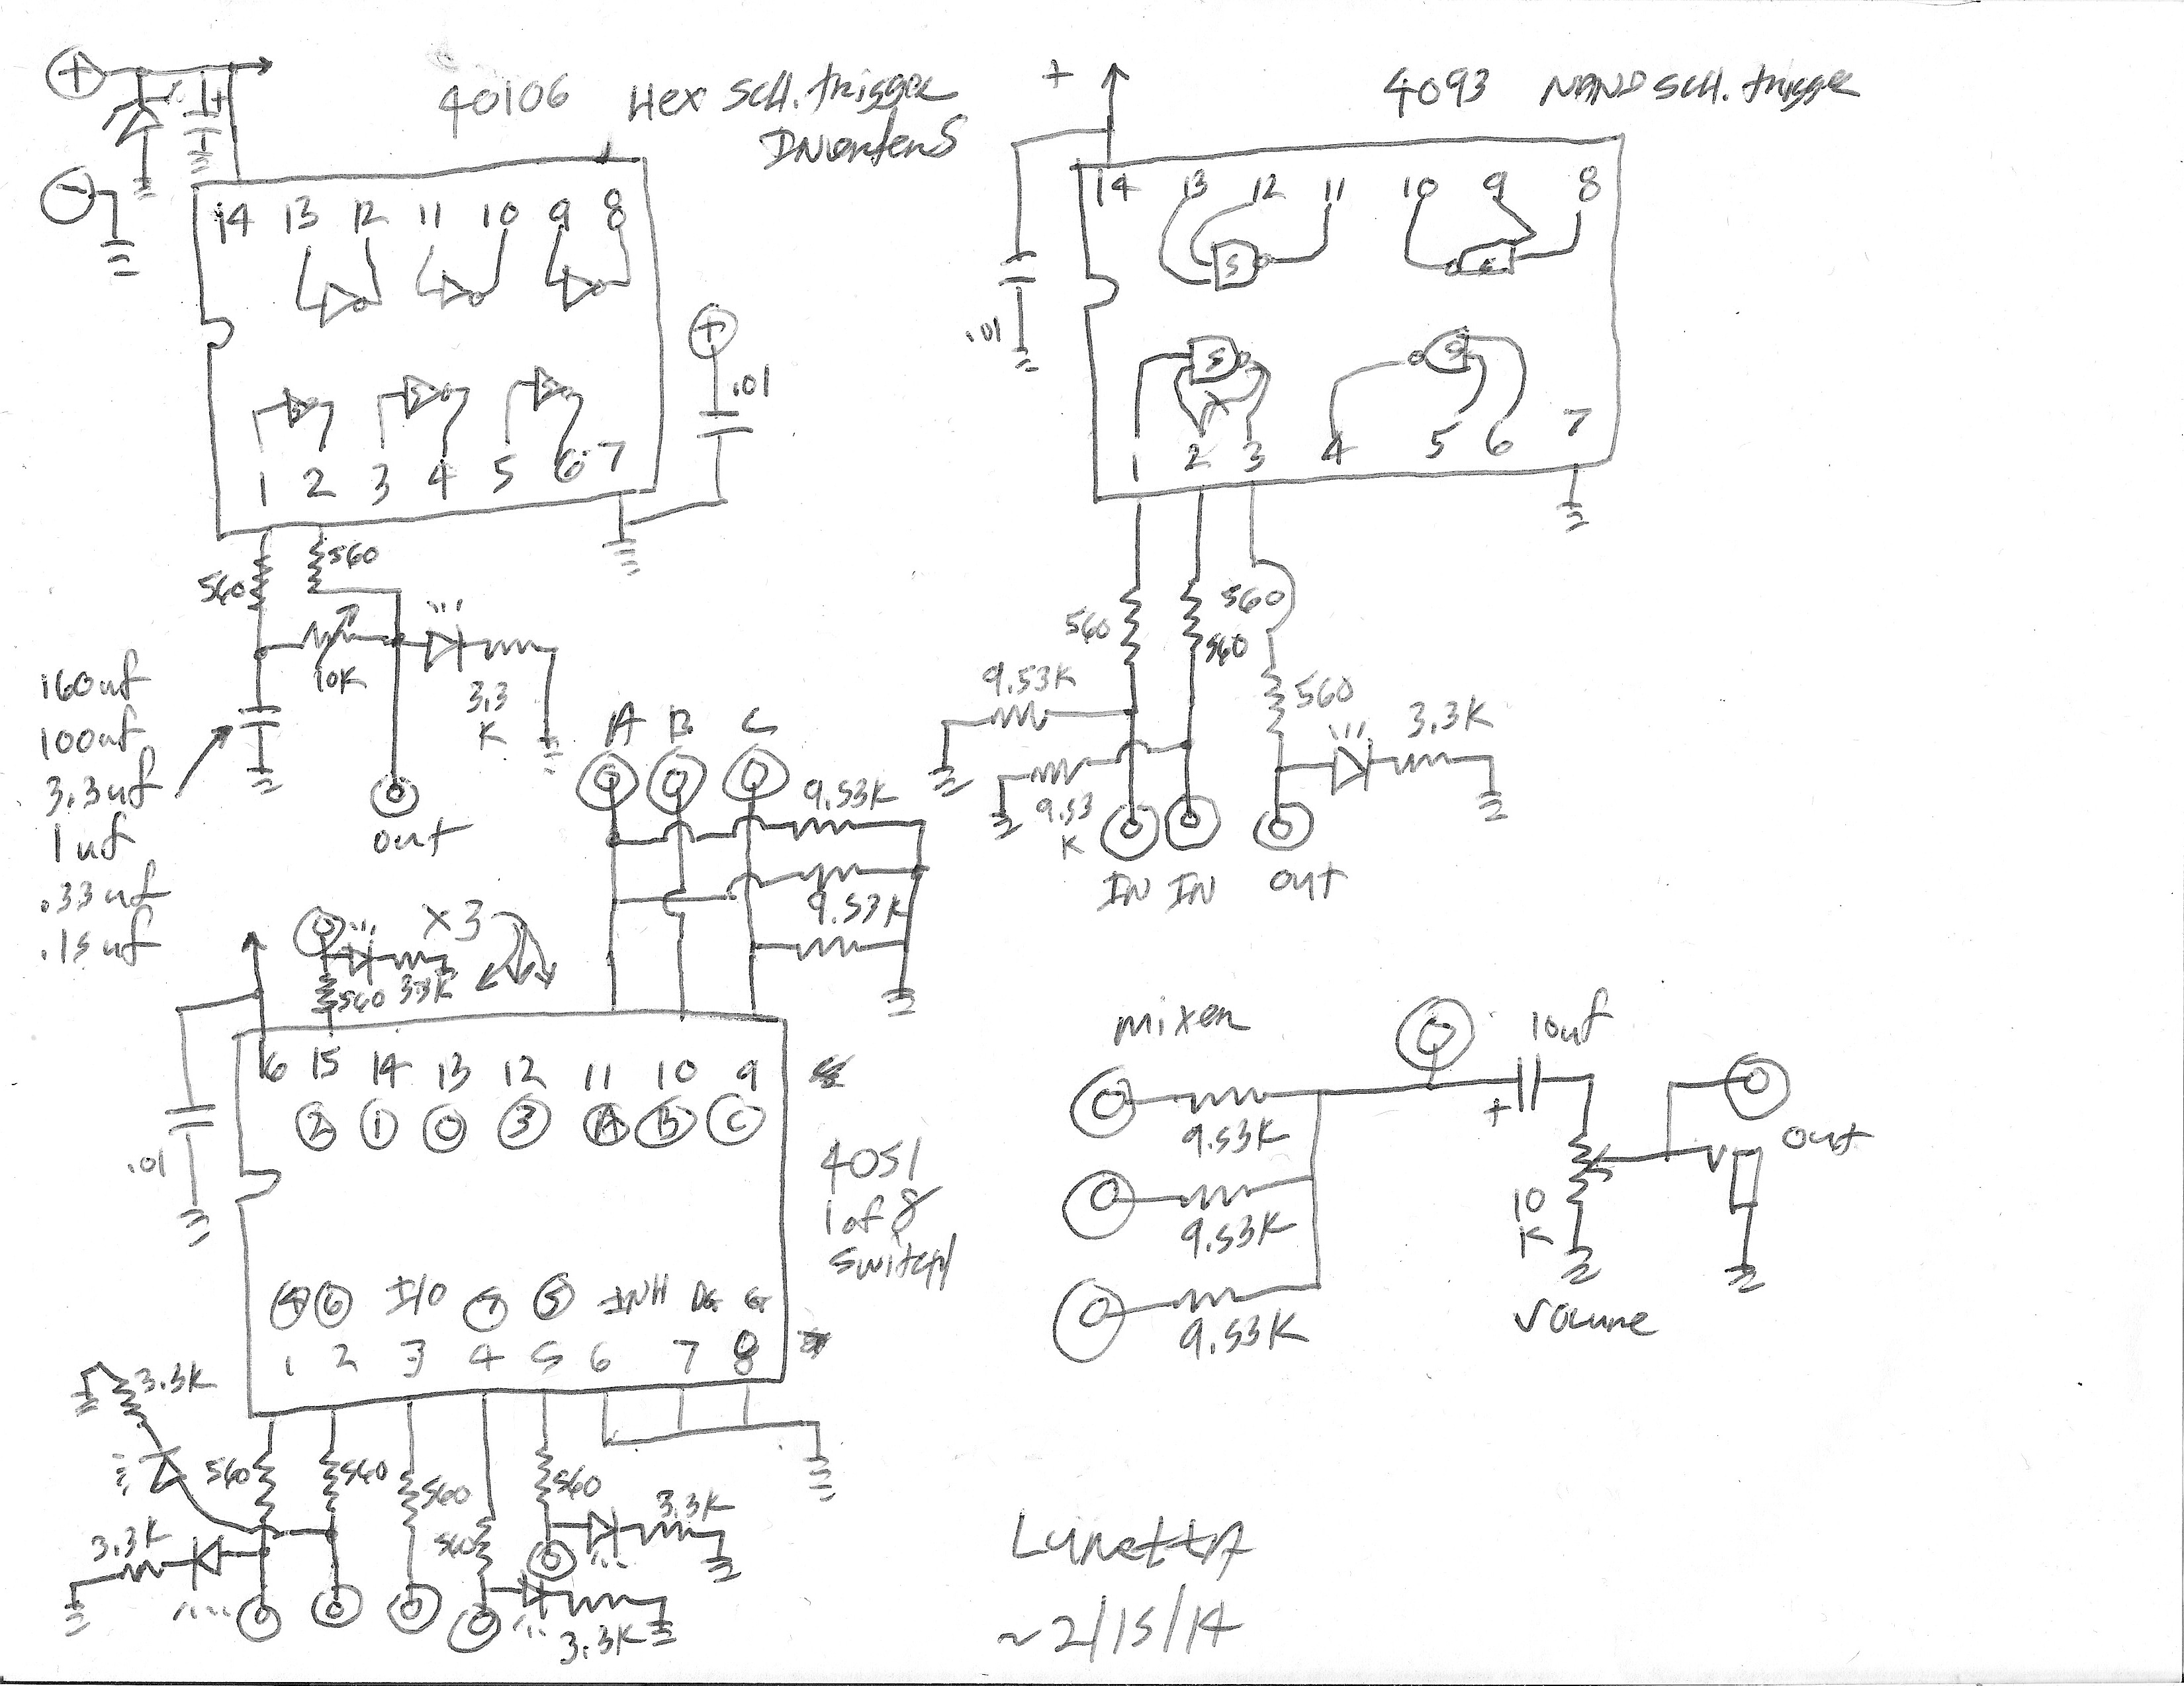 +
-
40106 Hex Sch. trigger
INverterS
14 13 12 11 10 9 8
1 2 3 4 5 6 7
+
.01
560
560
10K
3.3
K
160uf
100uf
3.3uf
1uf
.33uf
.15uf
out
+
4093 NAND SCH. trigger
14 13 12 11 10 9 8
S
S
.01
1 2 3 4 5 6 7
560
560
560
560
9.53K
9.53
K
3.3K
IN IN out
A B C
9.53K
9.53K
X3
560 33K
.01
16 15 14 13 12 11 10 9
2 1 0 3 A B C
4051
1 of 8
switch
4 6 I/O 7 5 INH DG G
1 2 3 4 5 6 7 8
3.3K
560
560
560
560
560
3.3K
3.3K
3.3K
mixer
9.53K
9.53K
9.53K
10uf
+
10
K
Volume
out
LunettA
~2/15/14